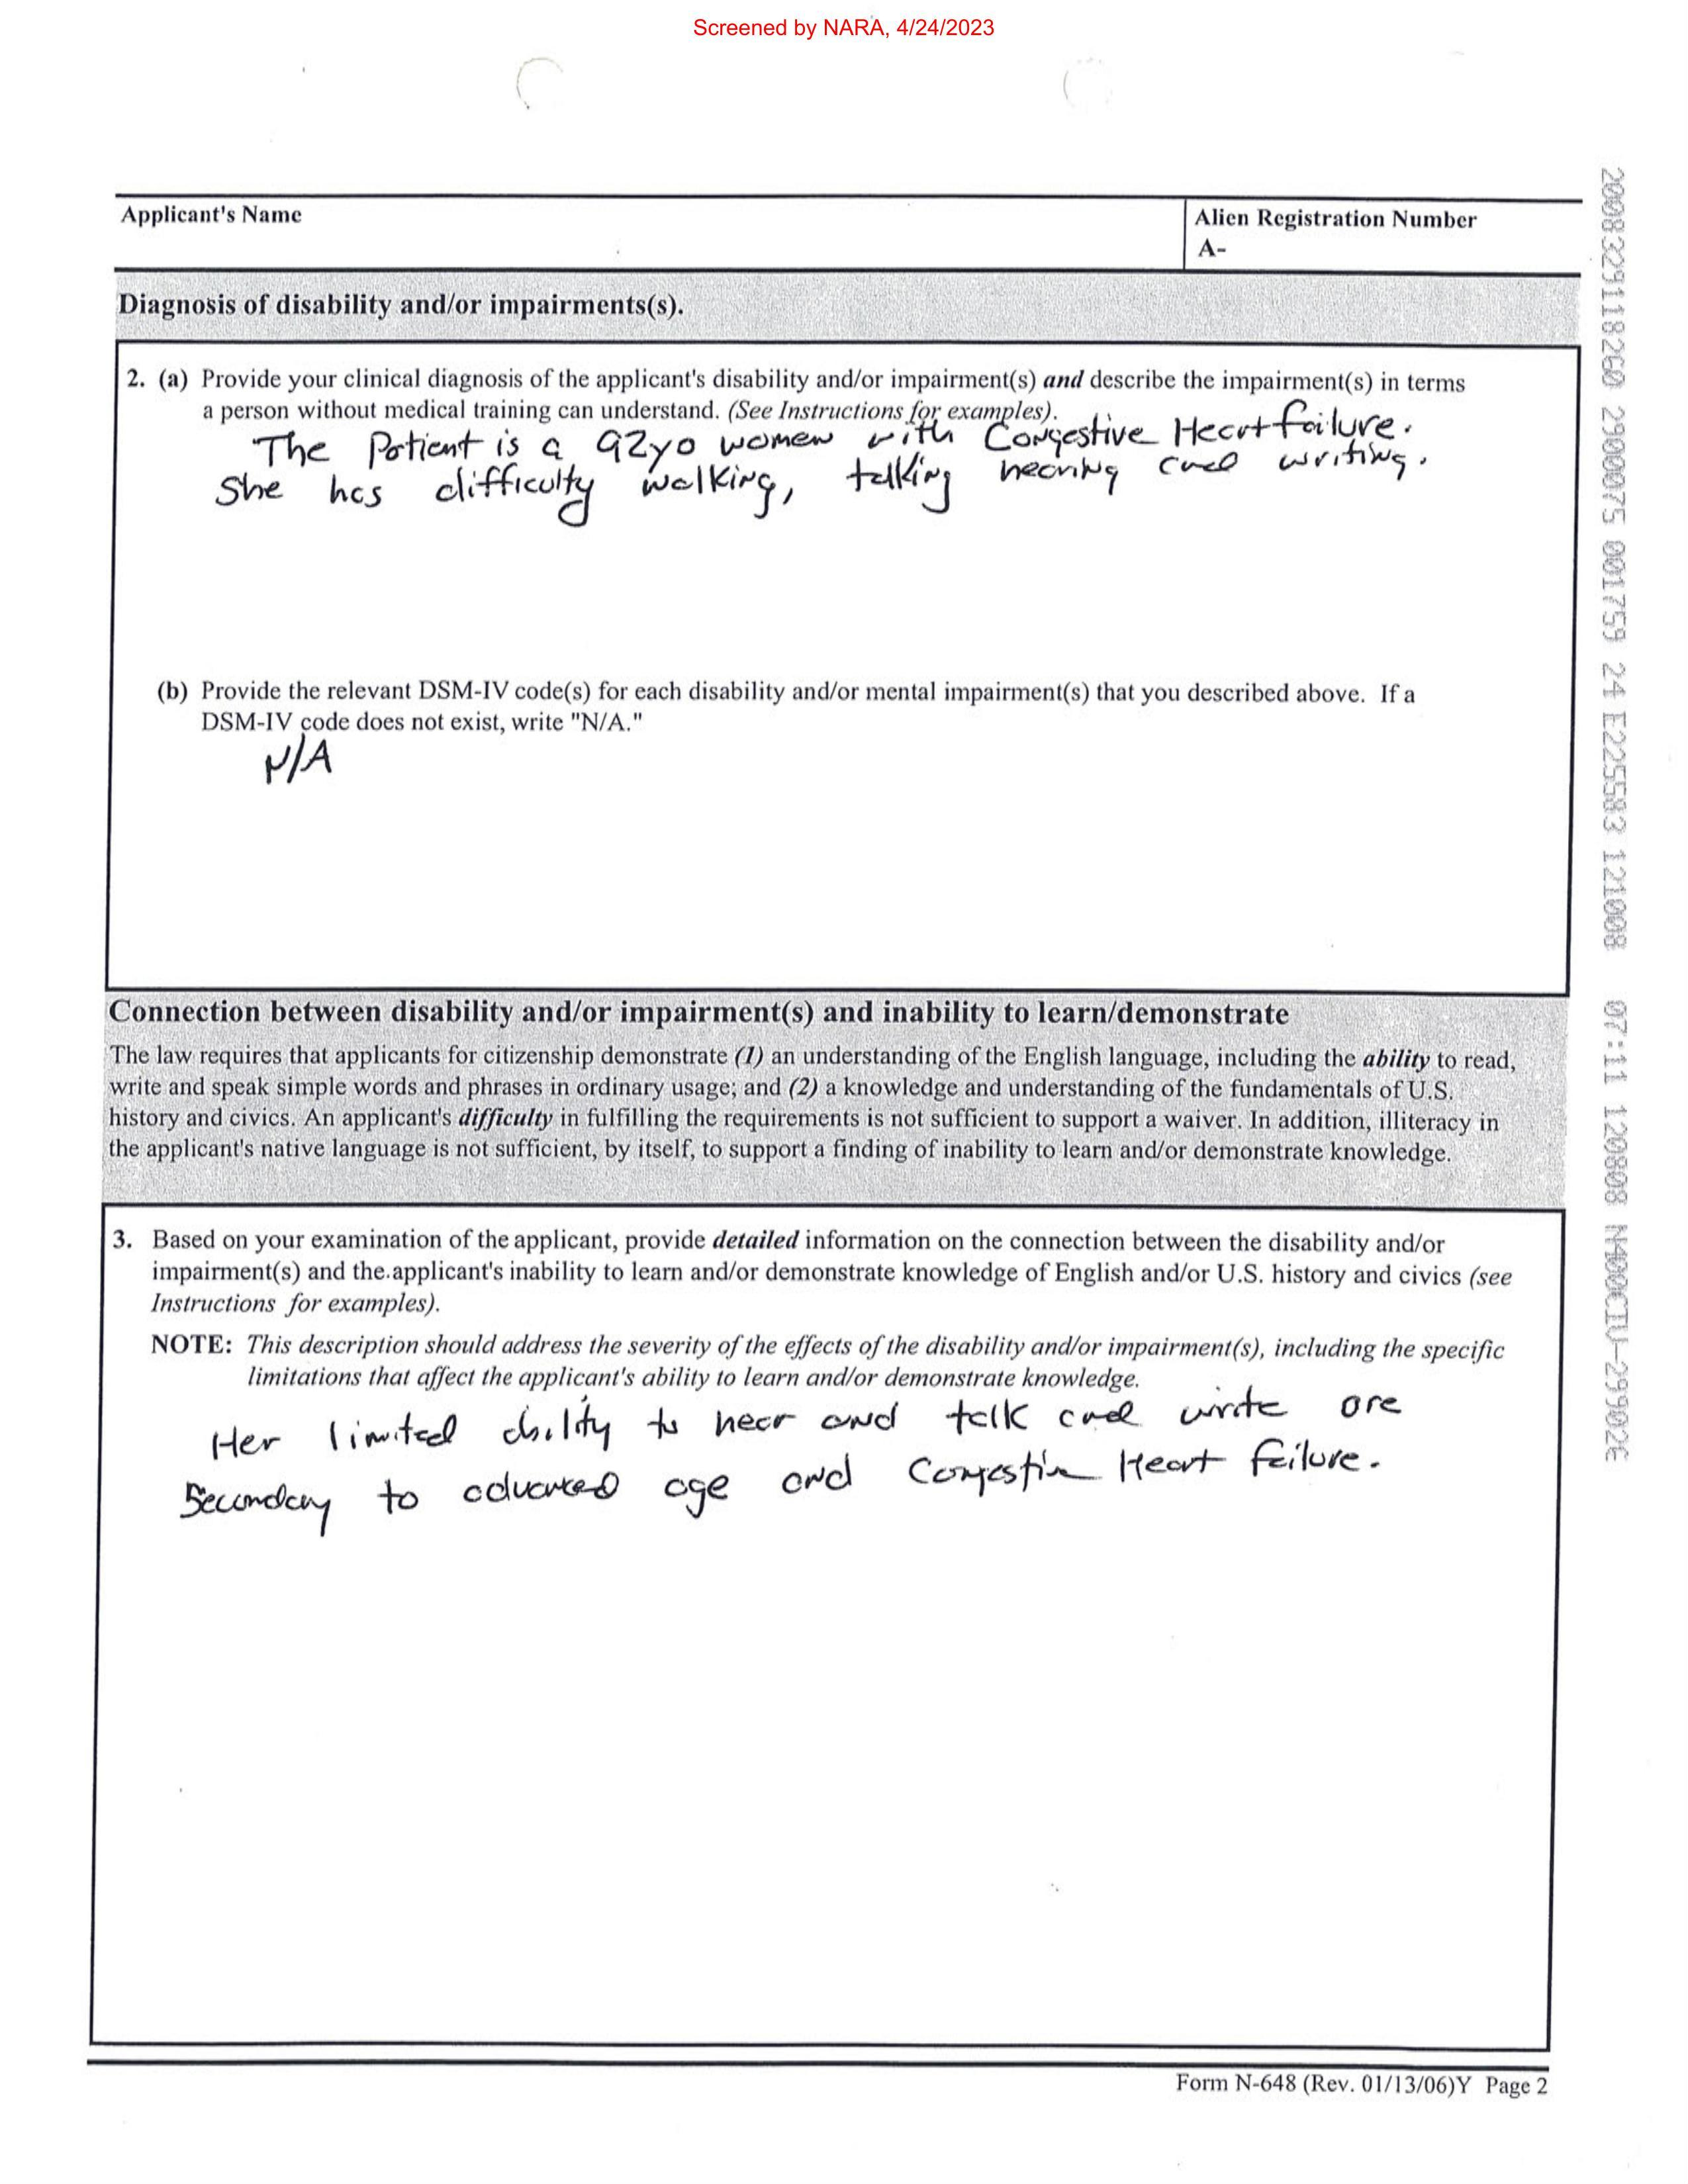 Screened by NARA, 4/24/2023
Applicant's Name
Alien Registration Number
A-
Diagnosis of disability and/or impairments(s).
2. (a) Provide your clinical diagnosis of the applicant's disability and/or impairment(s) and describe the impairment(s) in terms
a person without medical training can understand. (See Instructions for examples).
The Patient is a 92yo women with Congestive Heart failure.
She has difficulty walking, talking hearing and writing.
(b) Provide the relevant DSM-IV code(s) for each disability and/or mental impairment(s) that you described above. If a
DSM-IV code does not exist, write "N/A."
N/A
Connection between disability and/or impairment(s) and inability to learn/demonstrate
The law requires that applicants for citizenship demonstrate (1) an understanding of the English language, including the ability to read,
write and speak simple words and phrases in ordinary usage; and (2) a knowledge and understanding of the fundamentals of U.S.
history and civics. An applicant's difficulty in fulfilling the requirements is not sufficient to support a waiver. In addition, illiteracy in
the applicant's native language is not sufficient, by itself, to support a finding of inability to learn and/or demonstrate knowledge.
3. Based on your examination of the applicant, provide detailed information on the connection between the disability and/or
impairment(s) and the applicant's inability to learn and/or demonstrate knowledge of English and/or U.S. history and civics (see
Instructions for examples).
NOTE: This description should address the severity of the effects of the disability and/or impairment(s), including the specific
limitations that affect the applicant's ability to learn and/or demonstrate knowledge.
Her limited ability to hear and talk and write are
Secondary to advanced age and Congestive Heart failure.
Form N-648 (Rev. 01/13/06)Y Page 2
2008329118260 2900075 001759 24 E225583 121008 07:11 120808 N400CIV-299026